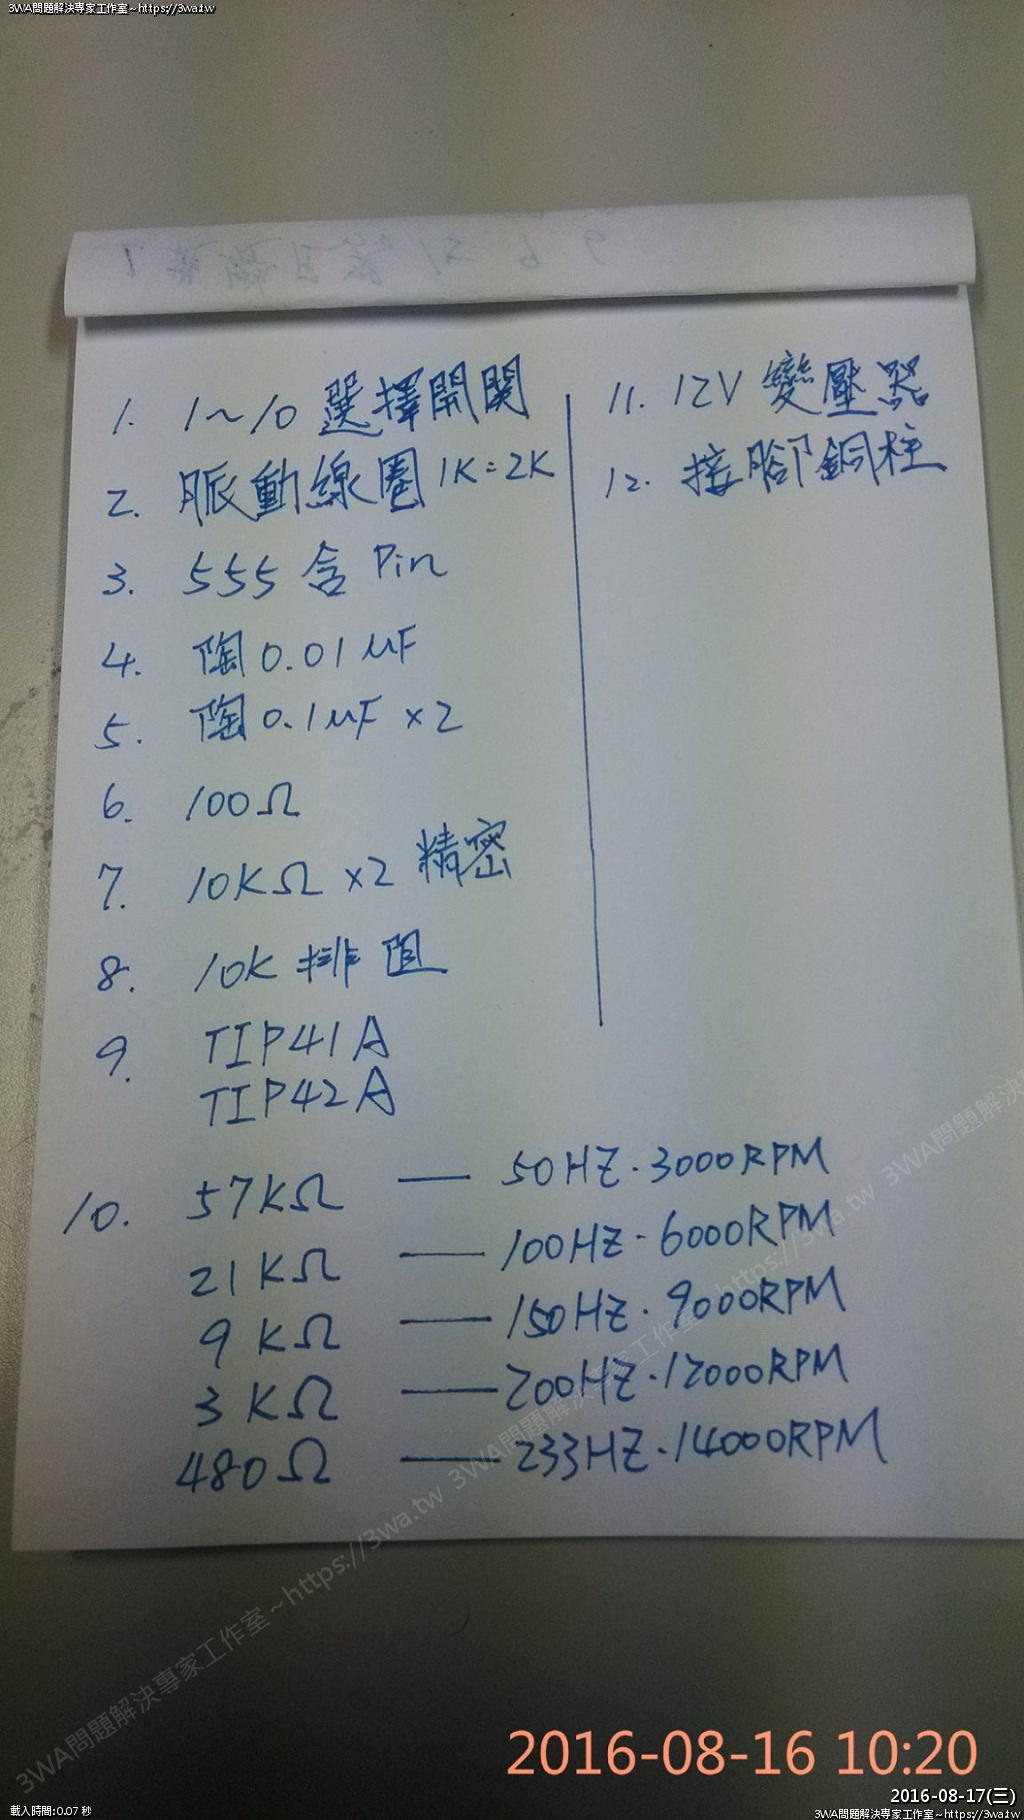 3WA問題解決專家工作室~https://3wa.tw
1. 1~10 選擇開関
2. 脈動線圈 1K=2K
3. 555 含 Pin
4. 陶 0.01 μF
5. 陶 0.1 μF ×2
6. 100Ω
7. 10KΩ ×2 精密
8. 10K 排阻
9. TIP41A
TIP42A
10. 57KΩ — 50HZ.3000RPM
21KΩ — 100HZ-6000RPM
9KΩ — 150HZ.9000RPM
3KΩ — 200HZ.12000RPM
480Ω — 233HZ.14000RPM
11. 12V 變壓器
12. 接腳銅柱
3WA問題解決專家工作室~https://3wa.tw 3WA問題解決專家工作室~https://3wa.tw 3WA問題解決
2016-08-16 10:20
2016-08-17(三)
載入時間:0.07 秒
3WA問題解決專家工作室~https://3wa.tw